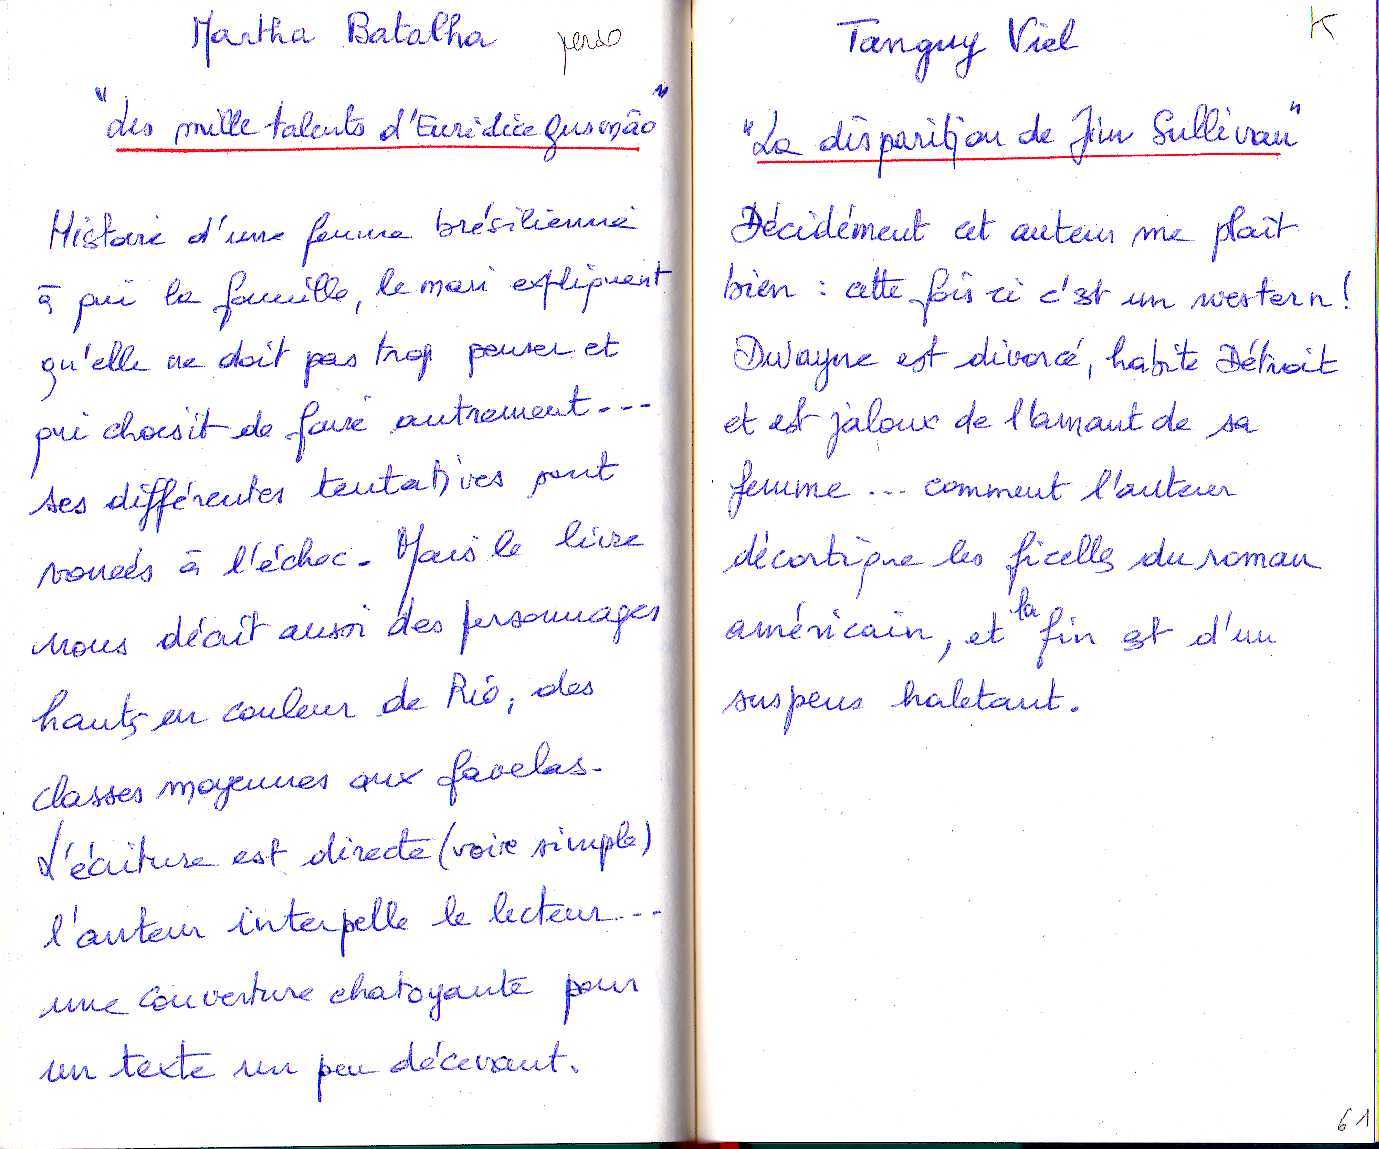 Martha Batalha perso
"Les mille talents d'Euridice Gusmão"
Histoire d'une femme brésilienne
à qui la famille, le mari expliquent
qu'elle ne doit pas trop penser et
qui choisit de faire autrement...
ses différentes tentatives sont
vouées à l'échec. Mais le livre
nous décrit aussi des personnages
hauts en couleur de Rio, des
classes moyennes aux favelas.
L'écriture est directe (voire simple)
l'auteur interpelle le lecteur...
une couverture chatoyante pour
un texte un peu décevant.
Tanguy Viel K
"La disparition de Jim Sullivan"
Décidément cet auteur me plaît
bien : cette fois-ci c'est un western !
Dwayne est divorcé, habite Détroit
et est jaloux de l'amant de sa
femme ... comment l'auteur
décortique les ficelles du roman
américain, et la fin est d'un
suspens haletant.
61